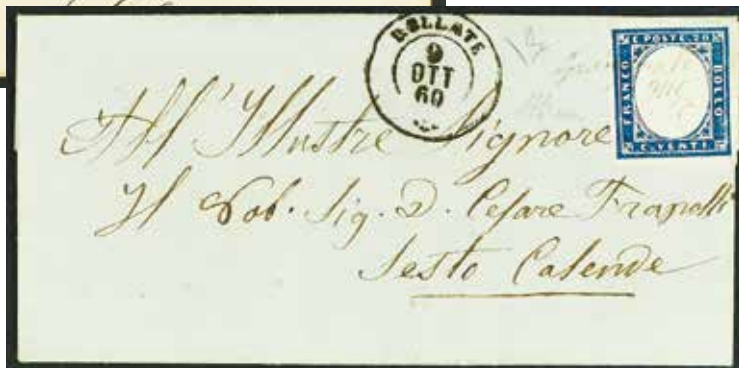 BOLLATE
9
OTT
60
C. POSTE. 20
FRANCO
BOLLO
C. VENTI
All'Illustre Signore
Il Nob. Sig. D. Cesare Frapolli
Sesto Calende